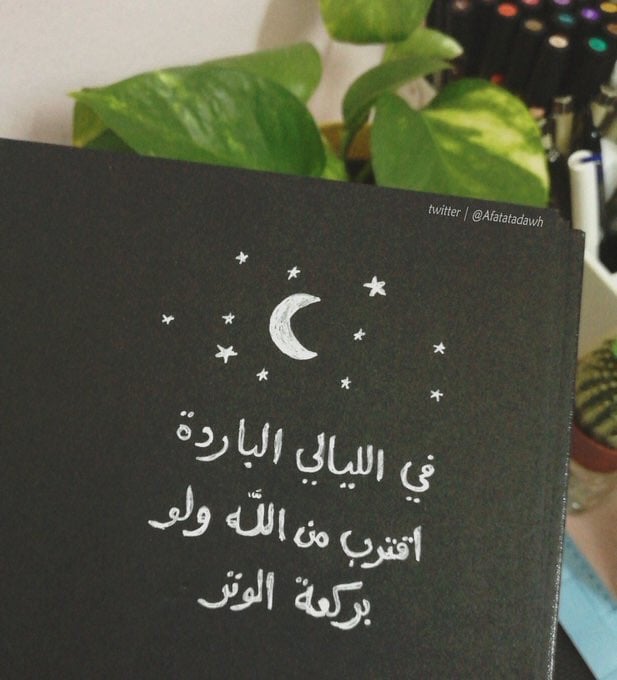 twitter | @Afatatadawh
في الليالي الباردة
اقترب من اللَّه ولو
بركعة الوتر